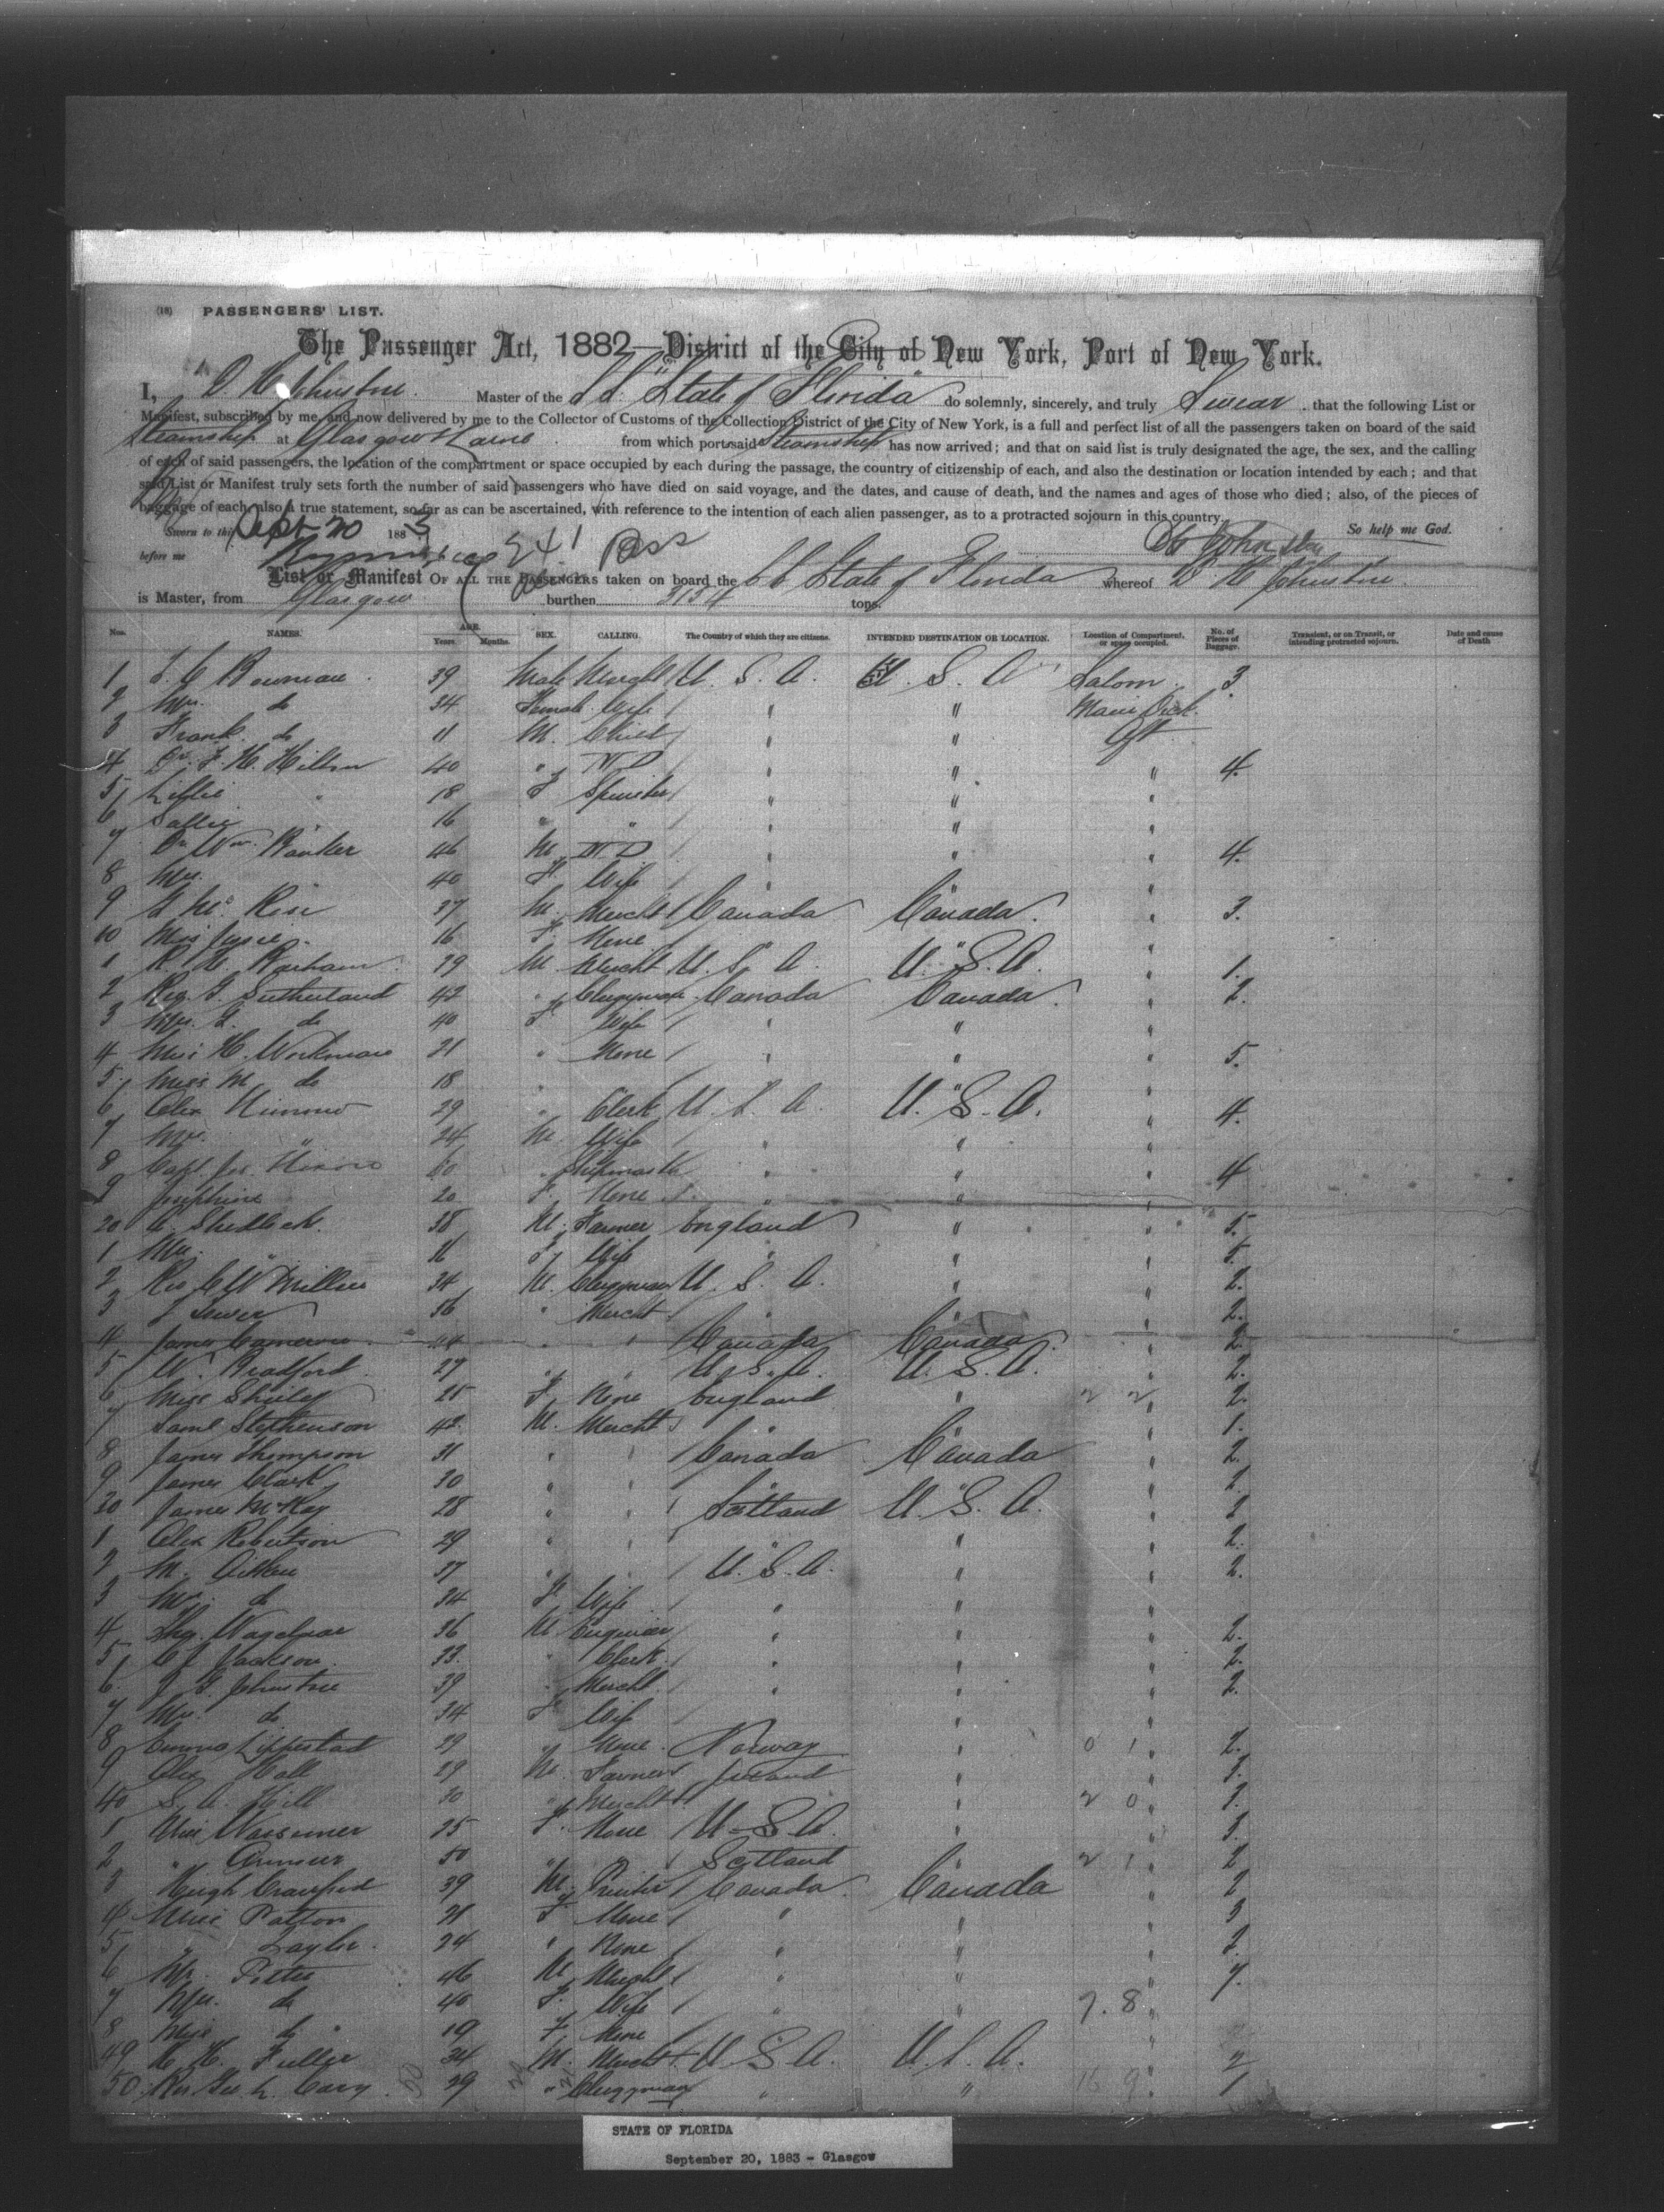 (18) PASSENGERS' LIST.
The Passenger Act, 1882—District of the City of New York, Port of New York.
I, D. H. Johnstone Master of the S.S. "State of Florida" do solemnly, sincerely, and truly Swear that the following List or
Manifest, subscribed by me, and now delivered by me to the Collector of Customs of the Collection District of the City of New York, is a full and perfect list of all the passengers taken on board of the said
Steamship at Glasgow & Larne from which port said Steamship has now arrived; and that on said list is truly designated the age, the sex, and the calling
of each of said passengers, the location of the compartment or space occupied by each during the passage, the country of citizenship of each, and also the destination or location intended by each; and that
said List or Manifest truly sets forth the number of said passengers who have died on said voyage, and the dates, and cause of death, and the names and ages of those who died; also, of the pieces of
baggage of each, also a true statement, so far as can be ascertained, with reference to the intention of each alien passenger, as to a protracted sojourn in this country.
Sworn to this Sept 20 1883 So help me God.
before me 341 Pass Johnstone
List or Manifest OF ALL THE PASSENGERS taken on board the SS State of Florida whereof D H Johnstone
is Master, from Glasgow burthen 3154 tons.
Nos. NAMES. AGE. Years. Months. SEX. CALLING. The Country of which they are citizens. INTENDED DESTINATION OR LOCATION. Location of Compartment, or space occupied. No. of Pieces of Baggage. Transient, or on Transit, or intending protracted sojourn. Date and cause of Death
1 Bowman 39 Male U. S. A. U. S. A Saloon 3
2 Mrs. do 34 Female Wife " " Main Deck
3 Frank do 11 M. Child " " Aft
4 Dr. F. H. Hilton 40 " M D " " " 4.
5 Lillie " 18 F Spinster " " "
6 Sallie " 16 " " " " "
7 Dr. Wm. Banker 46 M M D " " " 4.
8 Mrs. 40 F Wife " " "
9 37 M Mercht Canada Canada " 3.
10 Miss Jessie 16 F. None " " "
1 29 M Mercht U. S. A. U. S. A. " 1.
2 Rev. G. Sutherland 42 " Clergyman Canada Canada " 2.
3 Mrs. G. do 40 F Wife " " "
4 Miss H. Workman 21 " None " " " 5.
5 Miss M. do 18 " " " "
6 Alex Nimmo 29 " Clerk U. S. A. U. S. A. " 4.
7 Mrs. " 24 M. Wife " " "
8 Capt. Jas. Nixon 60 " Shipmaster " " " 4
9 Josephine 20 F. None " " "
20 A. Shedlock 38 M. Farmer England " " 5.
1 Mrs. " 16 F Wife " " " 5.
2 Rev C W Miller 34 M. Clergyman U. S. A. " " 2.
3 J 36 " Mercht " " " 2.
4 James Cameron 44 " " Canada Canada " 2
5 W. Bradford 27 " " U. S. A. U. S. A. " 2.
6 Miss Shirley 25 F None England " 2 2 " 2.
7 Saml Stephenson 42 M. Mercht " " " 1.
8 James Thompson 31 " " Canada Canada " 2.
9 James Clark 30 " " " " " 2.
30 James McKay 28 " " Scotland U. S. A. " 2
1 Alex Robertson 29 " " " " " 2.
2 M. Aitken 37 " " U. S. A. " " 2.
3 Mrs. do 34 F Wife " " "
4 36 M Engineer " " " 2.
5 C J Jackson 33. " Clerk " " " 2.
6. J G Johnstone 39 " Mercht. " " " 2.
7 Mrs. do 34 F Wife " " "
8 Emma Lippestad 29 " None Norway " 0 1 " 2.
9 Alex Hall 29 M. Farmer Ireland " "
40 S. A. Hill 30 " Mercht " 2 0 "
1 Miss 25 F. None U. S. A. " "
2 " Armour 50 " " Scotland " 2 1 " 2
3 Hugh Crawford 39 M. Printer Canada Canada " 2
4 Miss Patton 21 F None " " " 3
5 " Taylor 24 " None " " " 2.
6 Mr. 46 M Mercht " " " 7.
7 Mrs. do 40 F. Wife " " 7. 8 "
8 Miss do 19 F. None " " "
49 H. H. Fuller 34 M. Mercht U S A. U. S. A. "
50 Rev. Geo L. Cary 29 " Clergyman " " "
STATE OF FLORIDA
September 20, 1883 - Glasgow